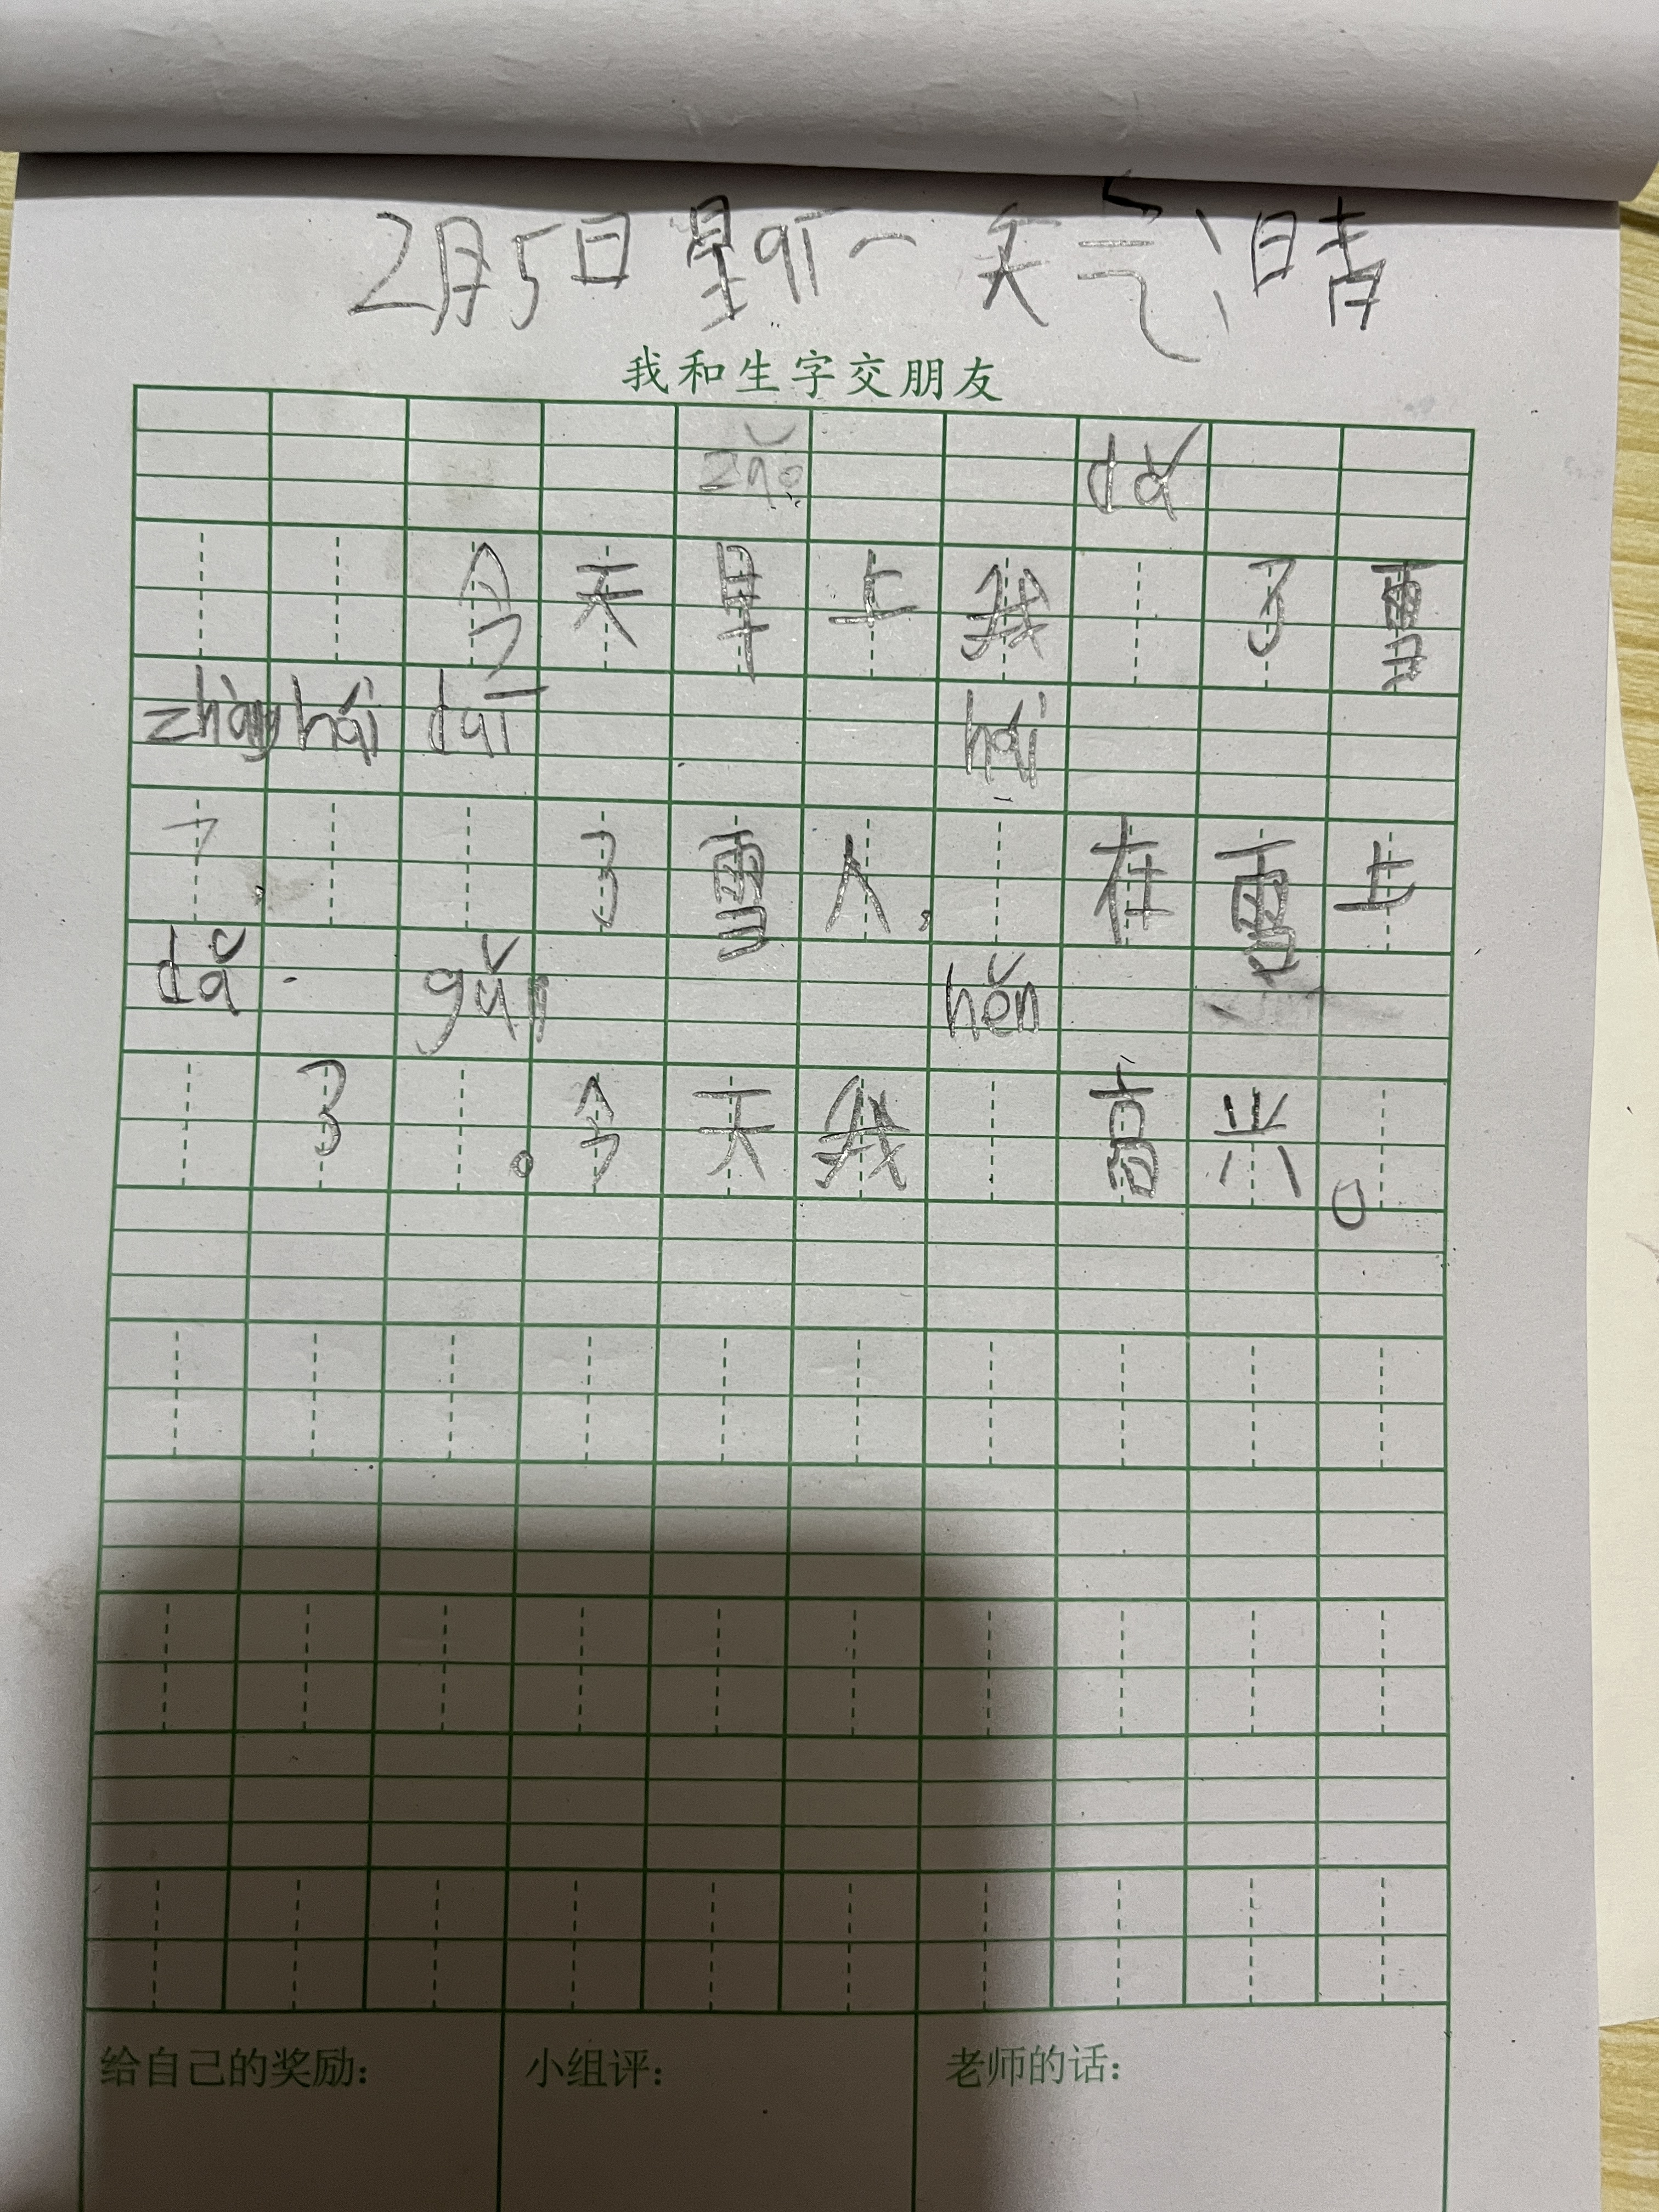 2月5日星qī一 天气:晴
我和生字交朋友
zǎo dǎ
今天早上我 了雪
zhàng hái duī
, 了雪人, hái 在雪上
dǎ gǔn hěn
了 。今天我 高兴。
给自己的奖励: 小组评: 老师的话: